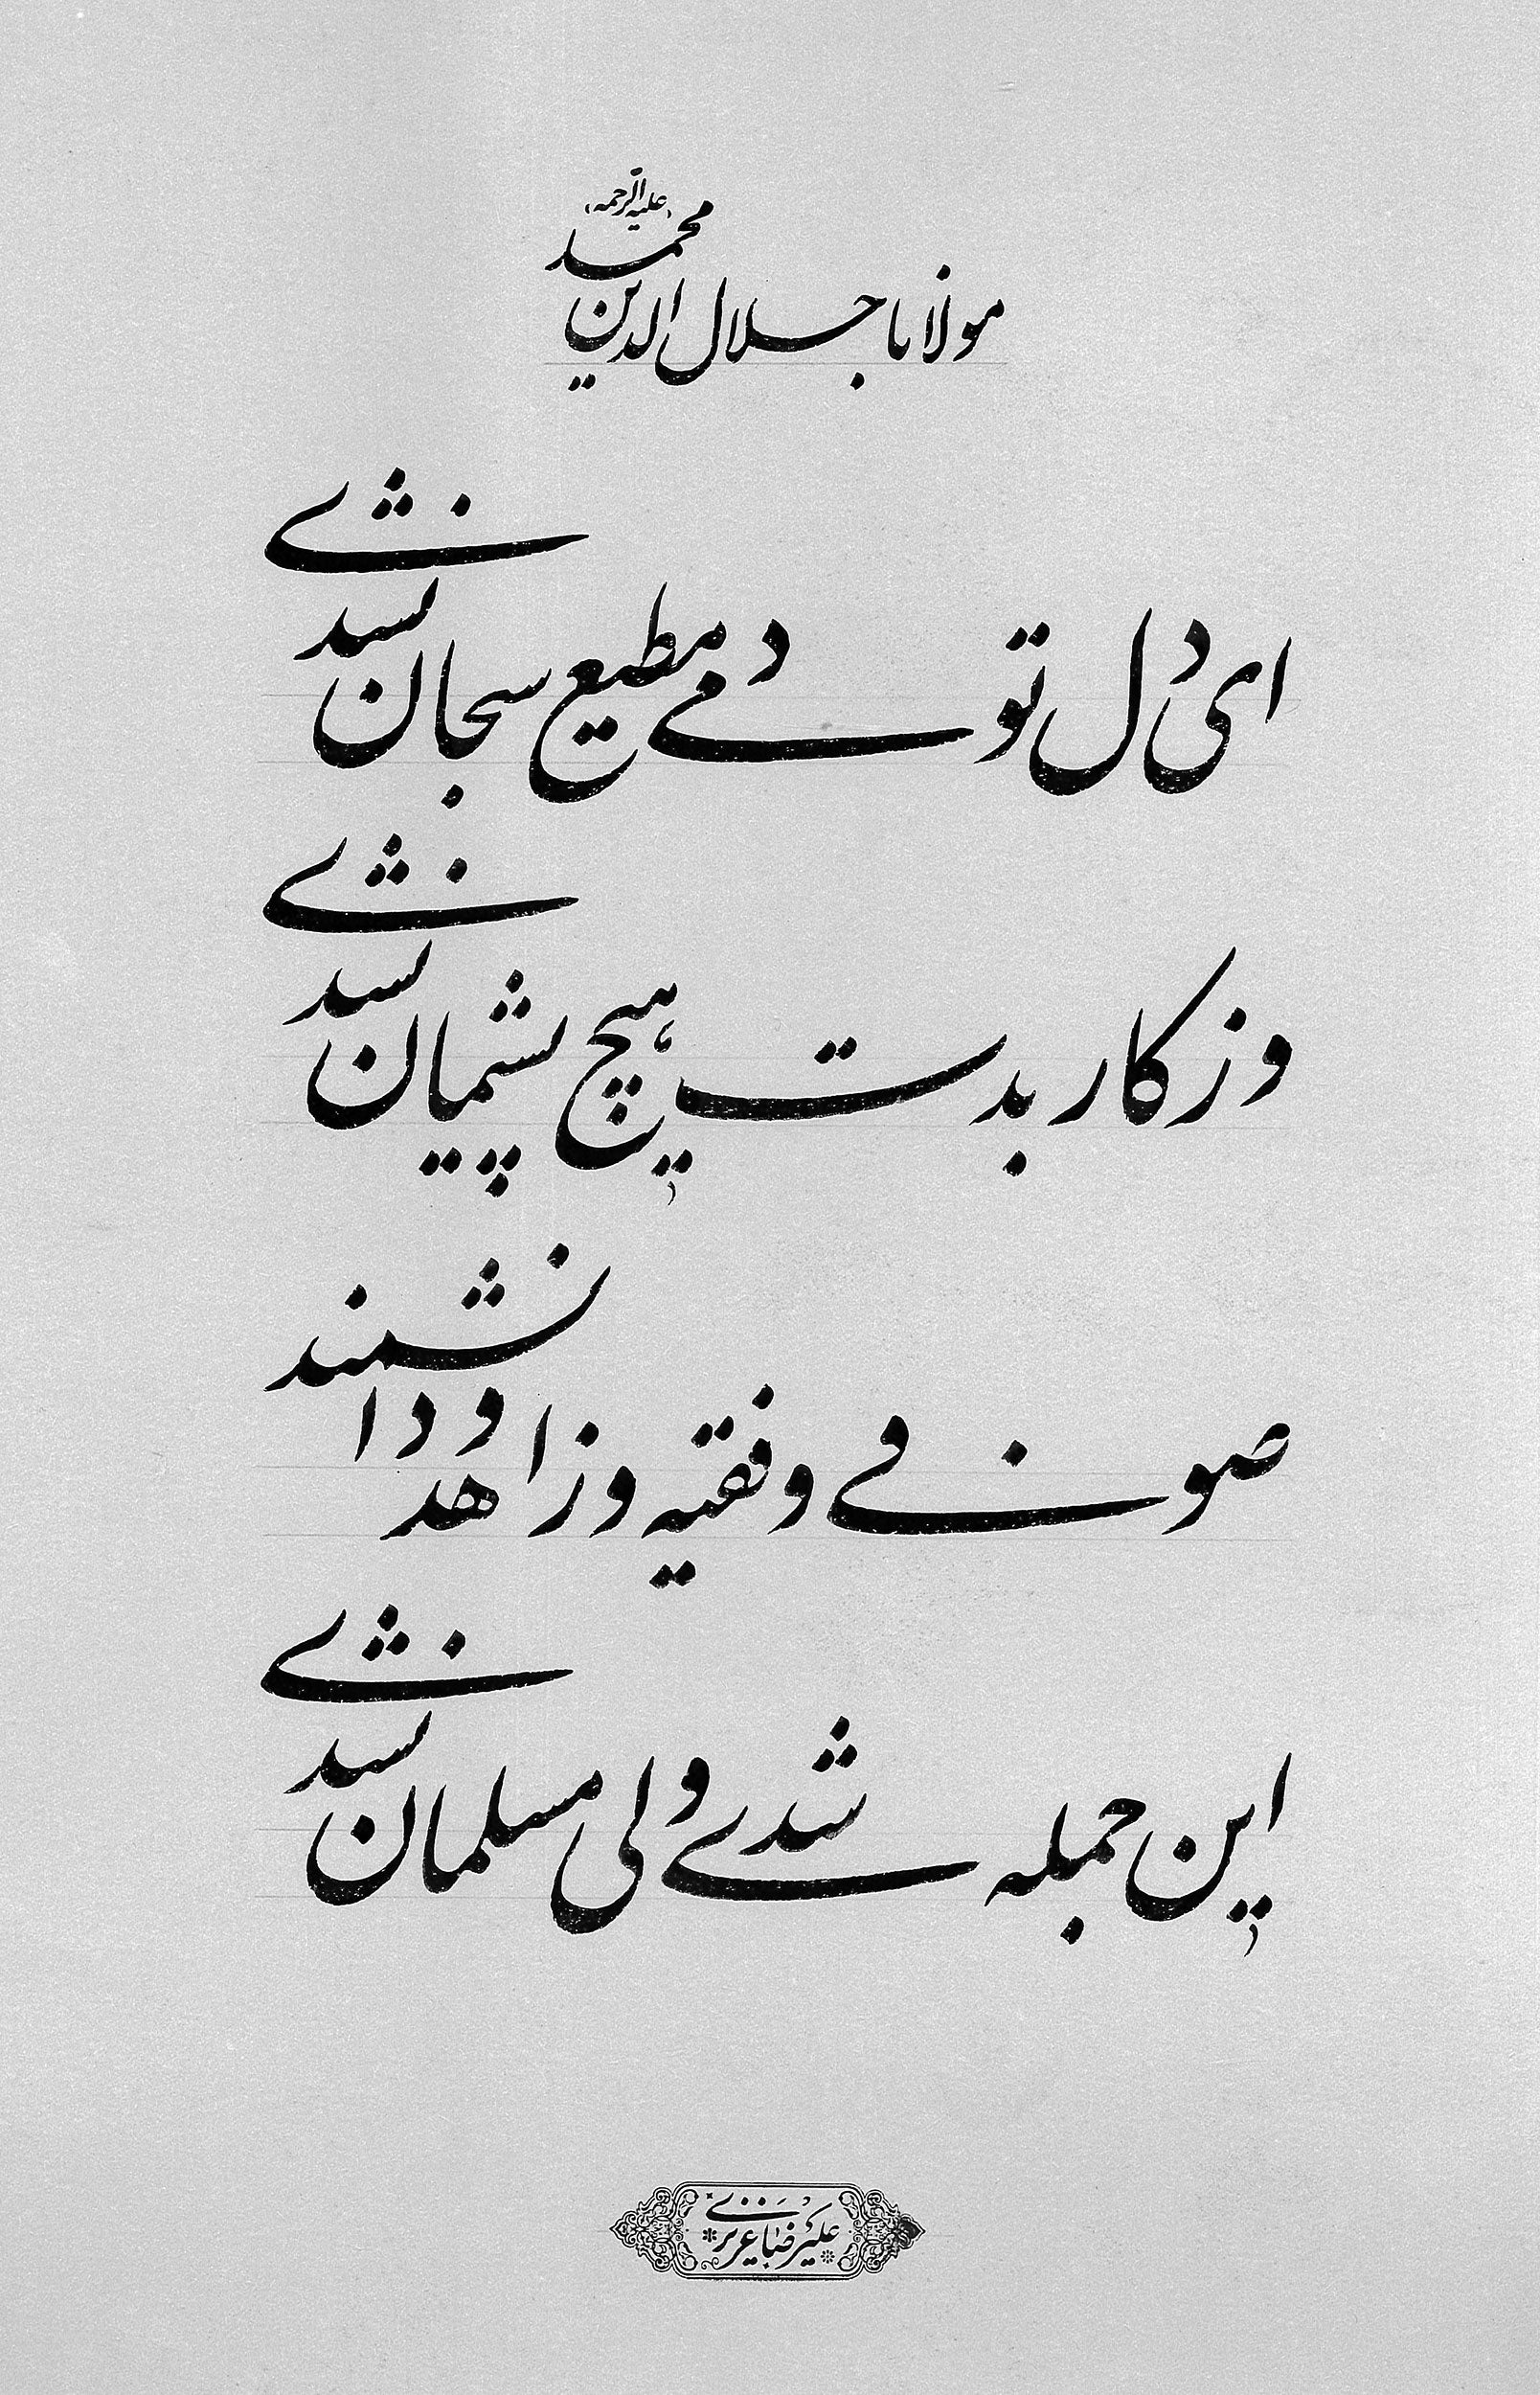 مولانا جلال الدین محمد (علیه الرحمه)
ای دل تو دمی مطیع سبحان نشدی
وز کار بدت هیچ پشیمان نشدی
صوفی و فقیه و زاهد و دانشمند
این جمله شدی ولی مسلمان نشدی
علیرضا